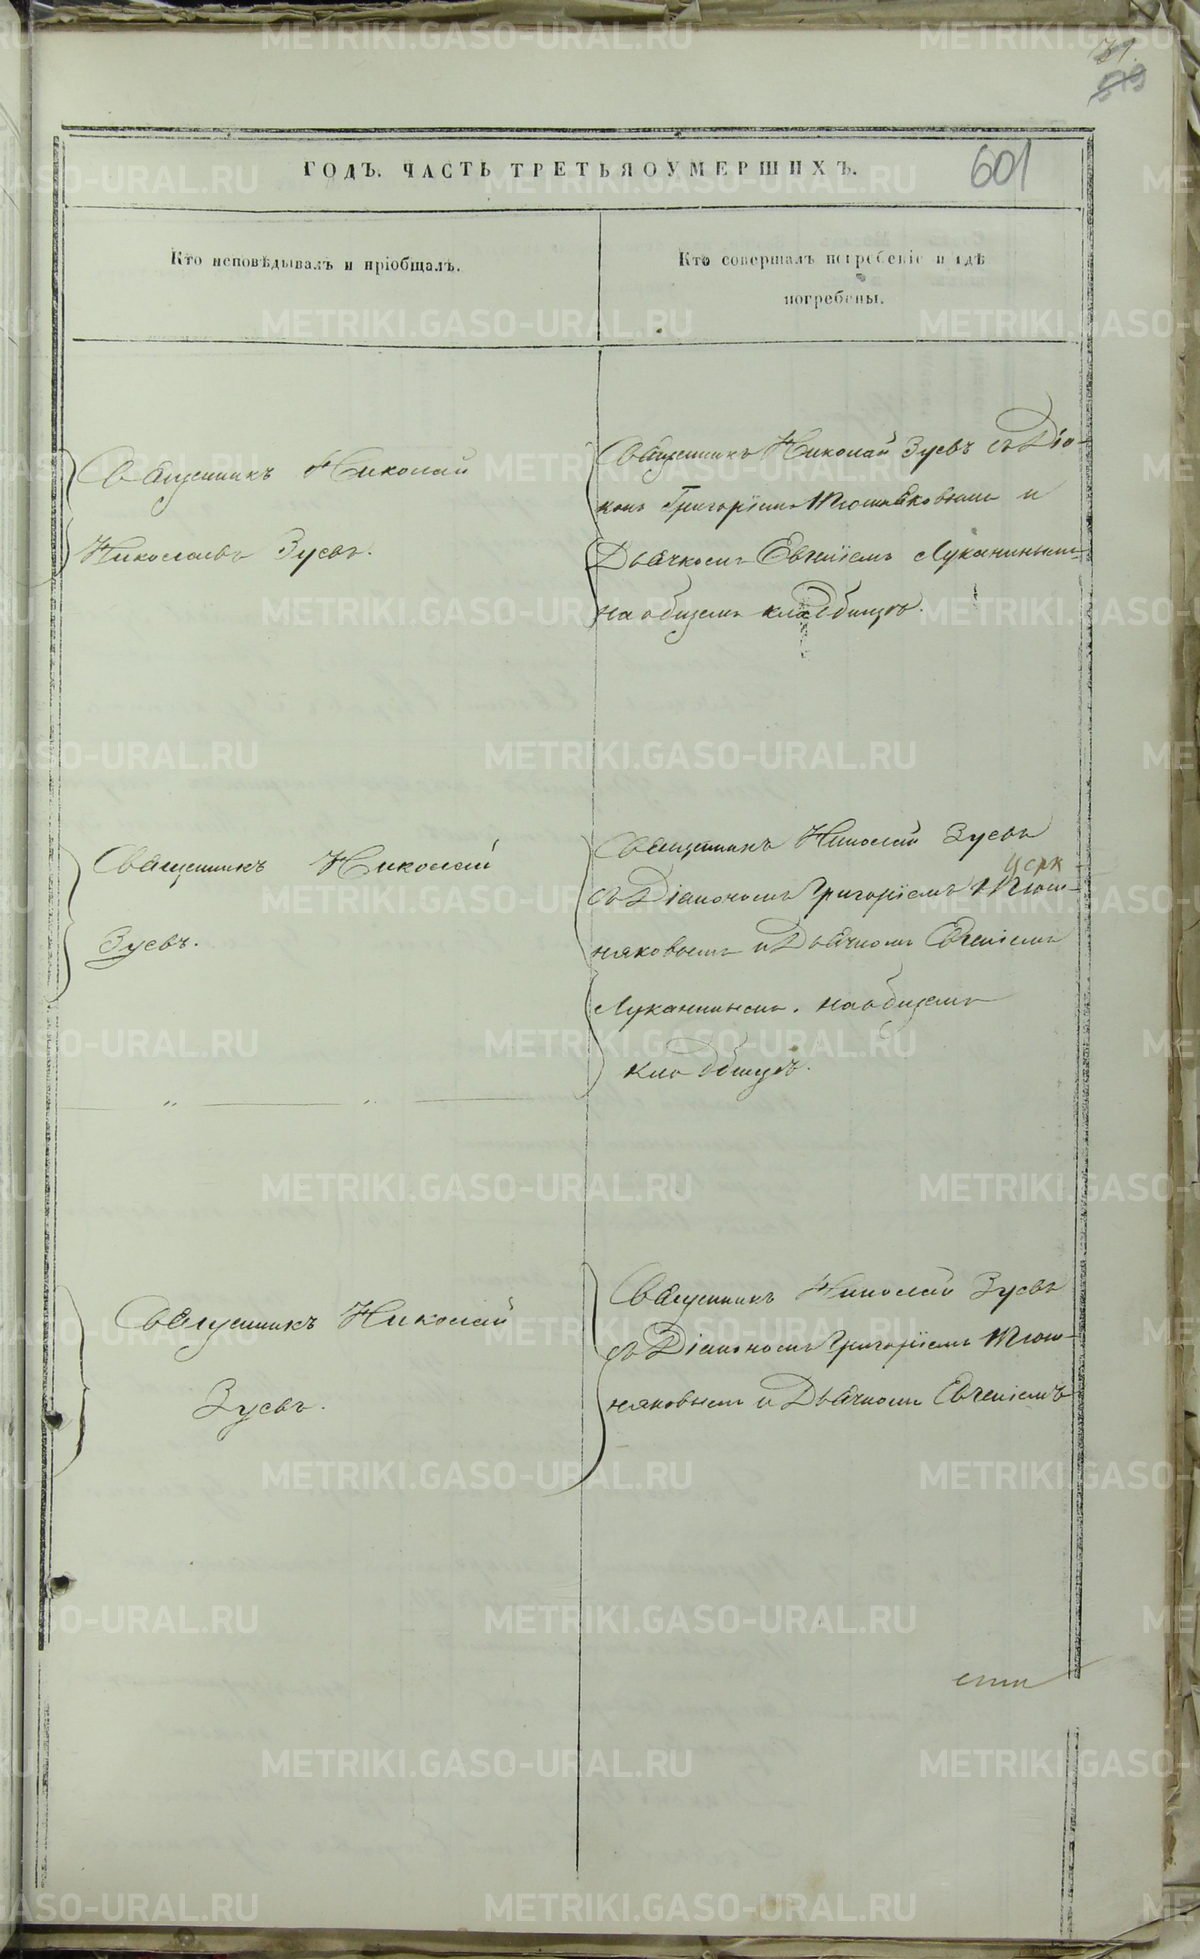 31.
579
601
ГОДЪ. ЧАСТЬ ТРЕТЬЯ О УМЕРШИХЪ.
Кто исповѣдывалъ и пріобщалъ.
Кто совершалъ погребеніе и гдѣ
погребены.
Священникъ Николай
Николаевъ Зуевъ.
Священникъ Николай Зуевъ съ Діа-
кономъ Григоріемъ и
Дьячкомъ Евгеніемъ Луканинымъ
на общемъ кладбищѣ.
Священникъ Николай
Зуевъ.
Священникъ Николай Зуевъ
съ Діакономъ Григоріемъ Тюш-
няковымъ и Дьячкомъ Евгеніемъ
Луканинымъ. на общемъ
кладбищѣ.
Священникъ Николай
Зуевъ.
Священникъ Николай Зуевъ
съ Діакономъ Григоріемъ Тюш-
няковымъ и Дьячкомъ Евгеніемъ
METRIKI.GASO-URAL.RU